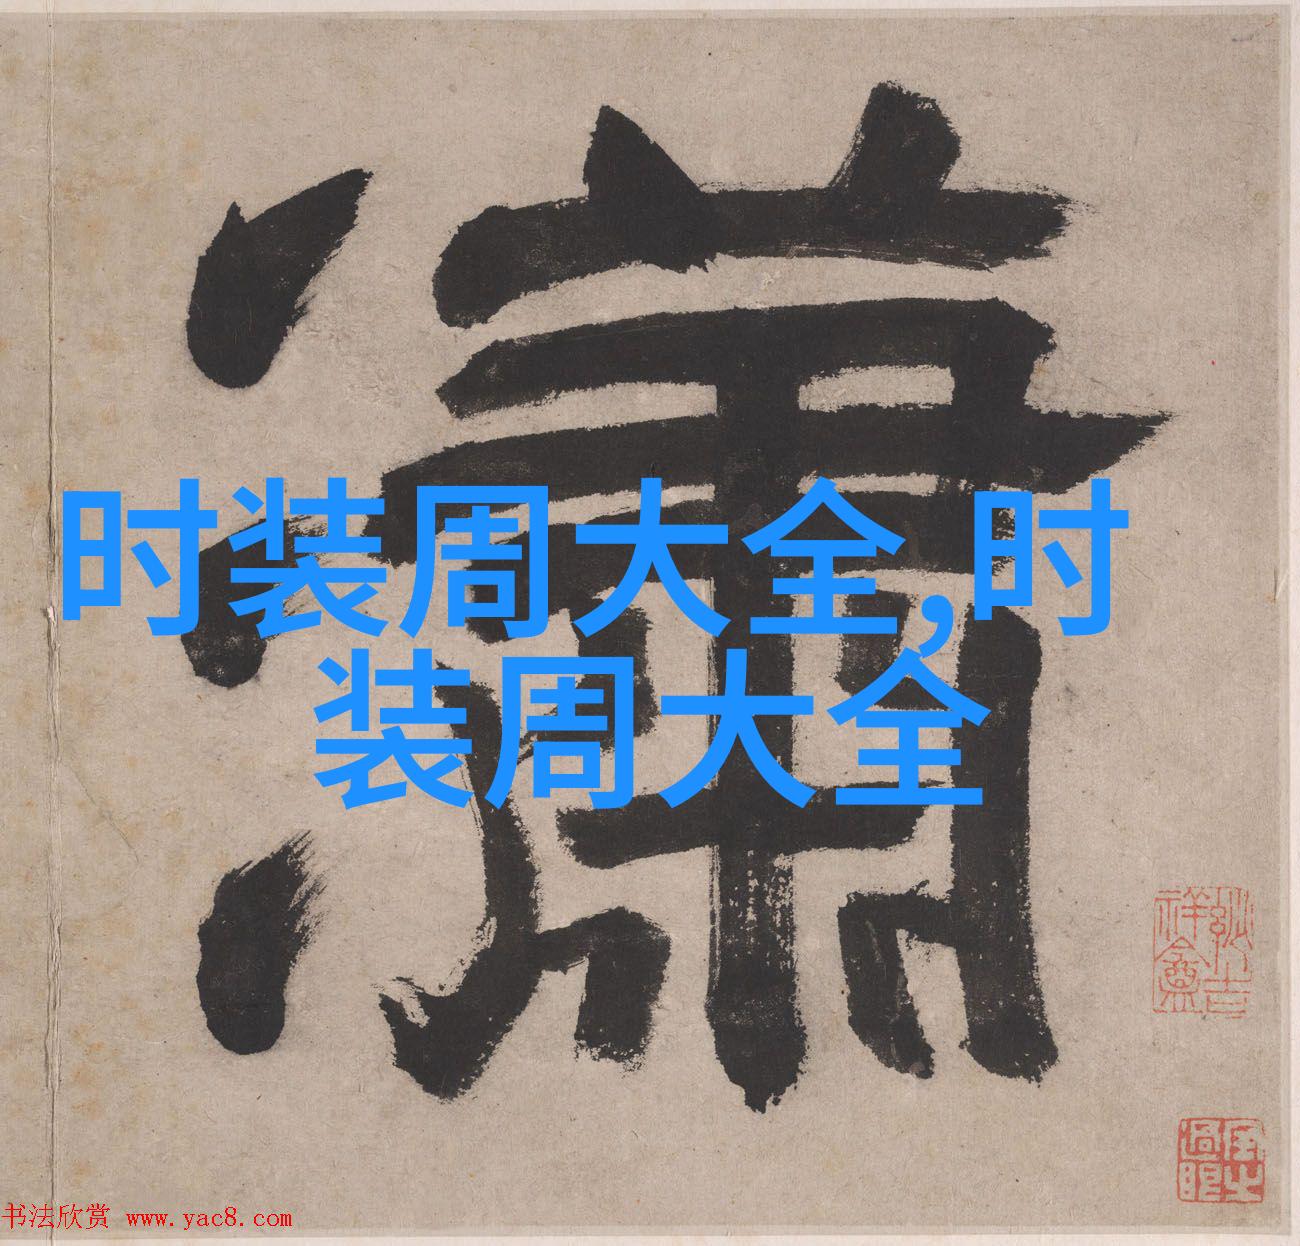 瀟
时装周大全,时
装周大全
书法欣赏 www.yac8.com